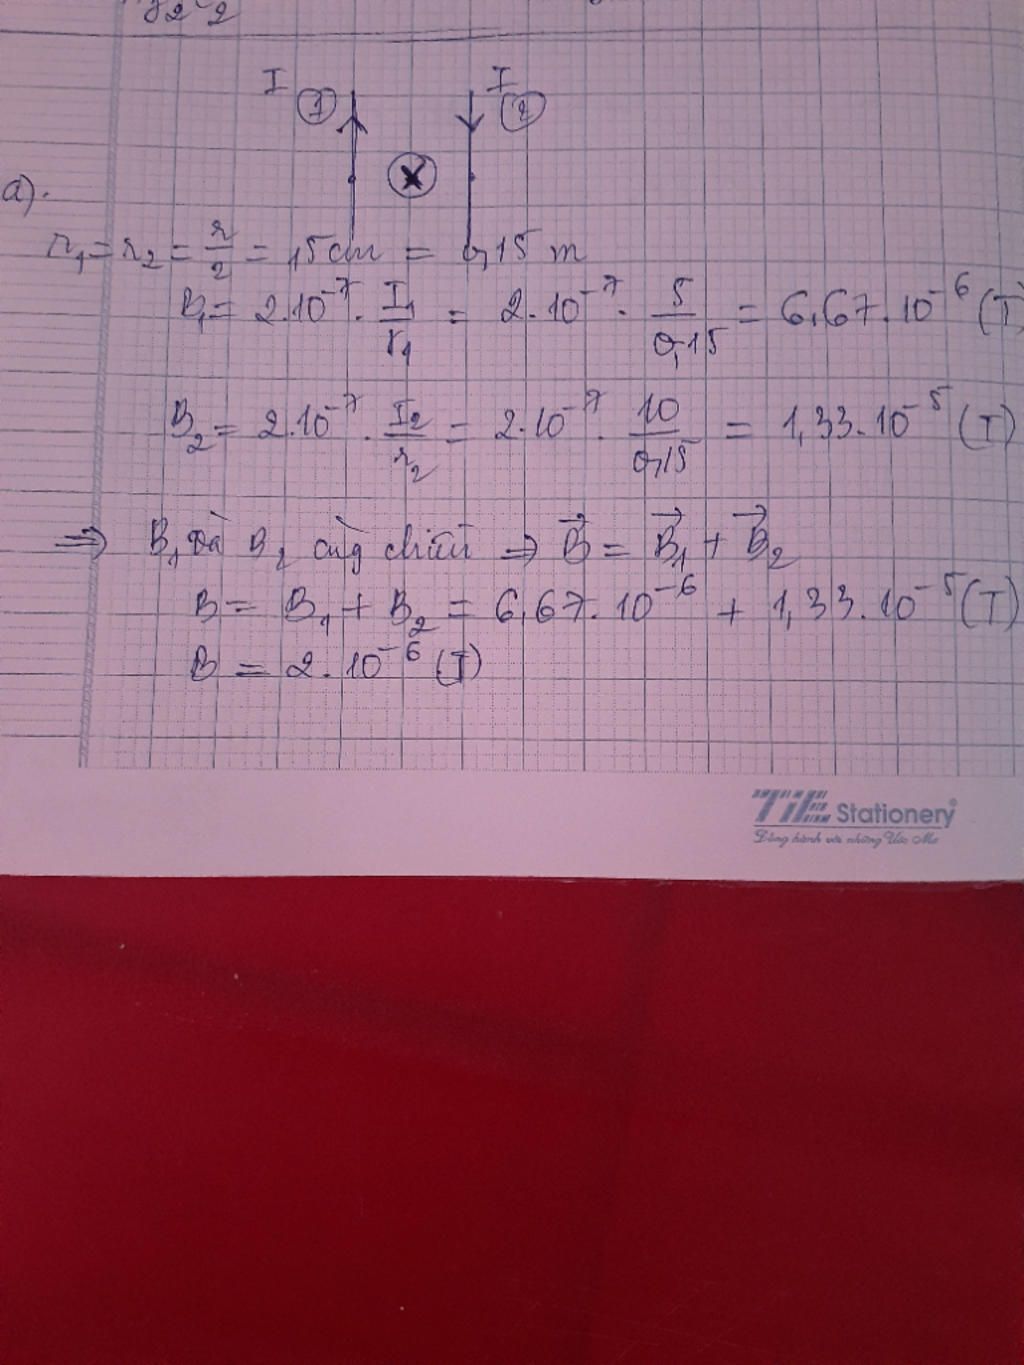 I ① I ②
a).
r₁ = r₂ = r/2 = 15cm = 0,15 m
B₁ = 2.10⁻⁷ . I₁/r₁ = 2.10⁻⁷ . 5/0,15 = 6,67.10⁻⁶ (T)
B₂ = 2.10⁻⁷ . I₂/r₂ = 2.10⁻⁷ . 10/0,15 = 1,33.10⁻⁵ (T)
⇒ B₁ và B₂ cùng chiều ⇒ B⃗ = B⃗₁ + B⃗₂
B = B₁ + B₂ = 6,67.10⁻⁶ + 1,33.10⁻⁵ (T)
B = 2.10⁻⁶ (T)
TiE Stationery®
Đồng hành với những Ước Mơ